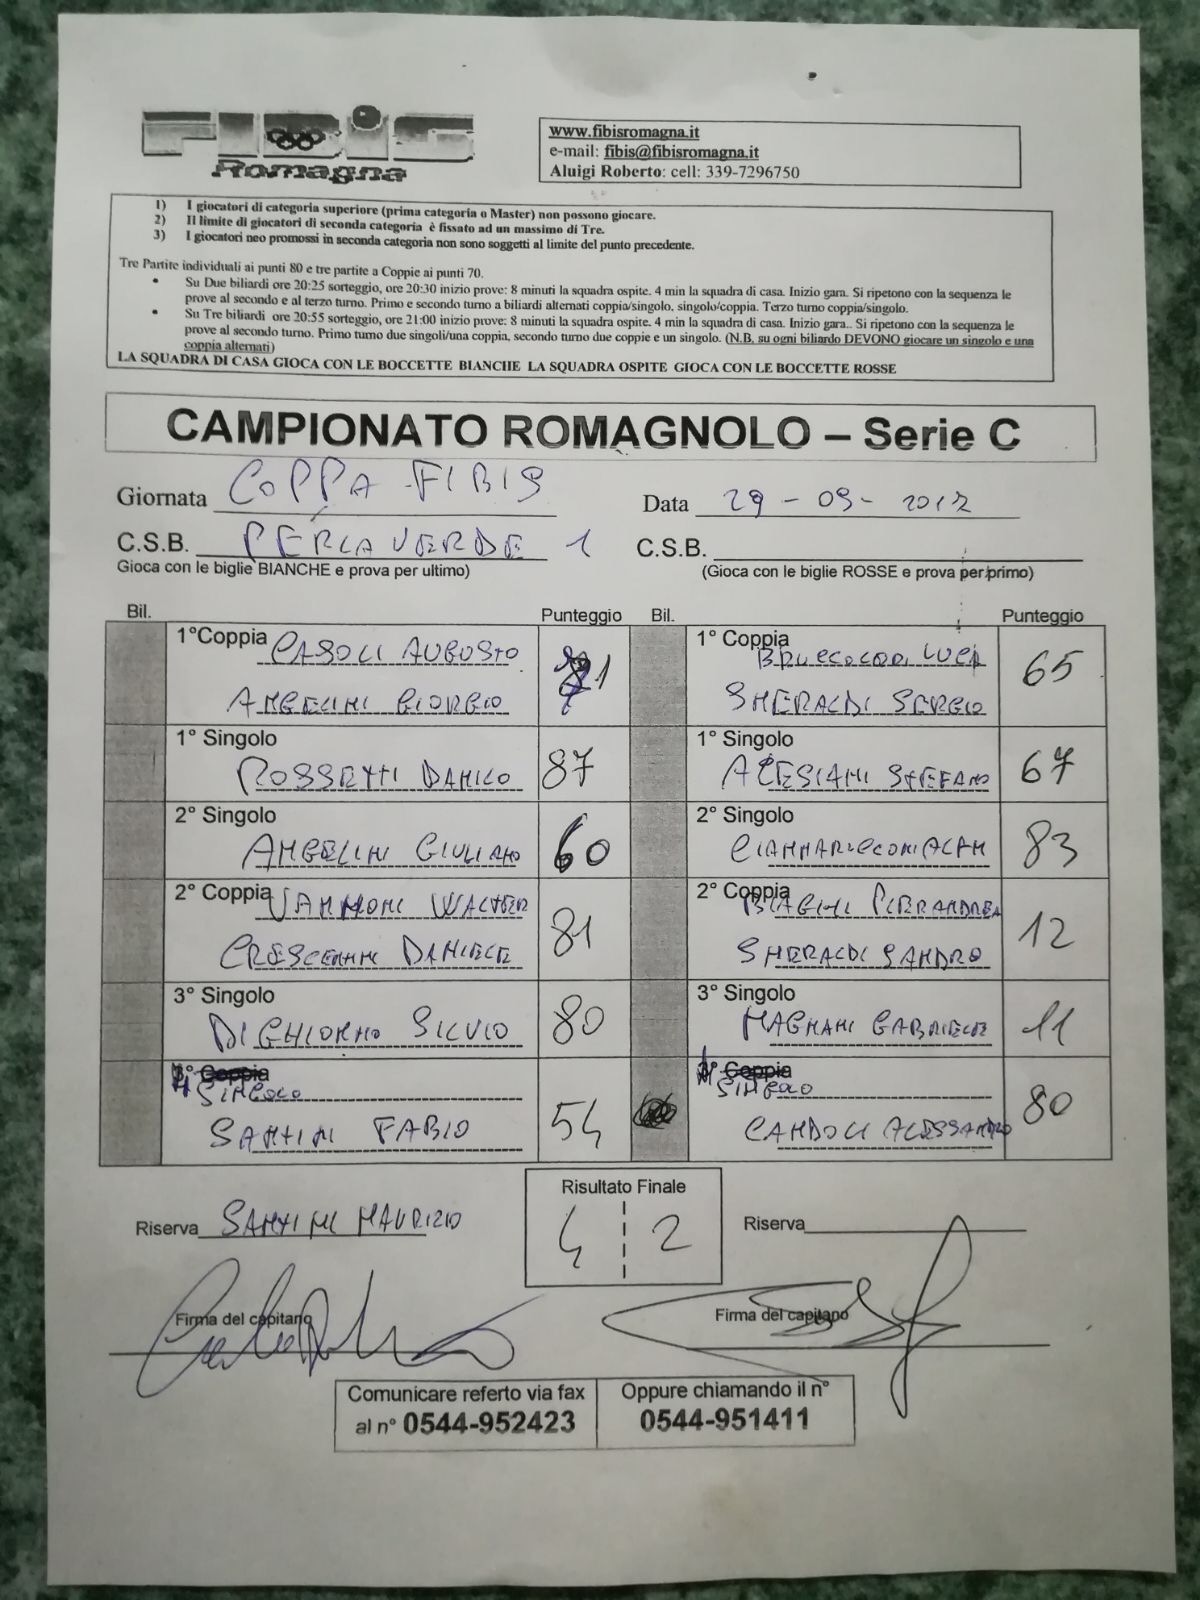 FIBiS
Romagna
www.fibisromagna.it
e-mail: fibis@fibisromagna.it
Aluigi Roberto: cell: 339-7296750
1) I giocatori di categoria superiore (prima categoria o Master) non possono giocare.
2) Il limite di giocatori di seconda categoria è fissato ad un massimo di Tre.
3) I giocatori neo promossi in seconda categoria non sono soggetti al limite del punto precedente.
Tre Partite individuali ai punti 80 e tre partite a Coppie ai punti 70.
• Su Due biliardi ore 20:25 sorteggio, ore 20:30 inizio prove: 8 minuti la squadra ospite. 4 min la squadra di casa. Inizio gara. Si ripetono con la sequenza le
prove al secondo e al terzo turno. Primo e secondo turno a biliardi alternati coppia/singolo, singolo/coppia. Terzo turno coppia/singolo.
• Su Tre biliardi ore 20:55 sorteggio, ore 21:00 inizio prove: 8 minuti la squadra ospite. 4 min la squadra di casa. Inizio gara.. Si ripetono con la sequenza le
prove al secondo turno. Primo turno due singoli/una coppia, secondo turno due coppie e un singolo. (N.B. su ogni biliardo DEVONO giocare un singolo e una
coppia alternati)
LA SQUADRA DI CASA GIOCA CON LE BOCCETTE BIANCHE LA SQUADRA OSPITE GIOCA CON LE BOCCETTE ROSSE
CAMPIONATO ROMAGNOLO – Serie C
Giornata COPPA FIBIS Data 29-09-2017
C.S.B. PERLA VERDE 1 C.S.B.
Gioca con le biglie BIANCHE e prova per ultimo) (Gioca con le biglie ROSSE e prova per primo)
Bil. Punteggio Bil. Punteggio
1°Coppia CASOLI AUGUSTO 1° Coppia LUCA
ANGELINI GIORGIO SMERALDI SERGIO 65
1° Singolo 1° Singolo
ROSSETTI DANILO 87 ALESIANI STEFANO 67
2° Singolo 2° Singolo
ANGELINI GIULIANO 60 83
2° Coppia VANNONI WALTER 2° Coppia BIAGINI PIERANDREA
CRESCENTINI DANIELE 81 SMERALDI SANDRO 12
3° Singolo 3° Singolo
DI GHIORNO SILVIO 80 MAGNANI GABRIELE 11
Coppia Coppia
SINGOLO SINGOLO
SANTINI FABIO 54 CANDOLI ALESSANDRO 80
Risultato Finale
4 2
Riserva SANTINI MAURIZIO Riserva
Firma del capitano Firma del capitano
Comunicare referto via fax Oppure chiamando il n°
al n° 0544-952423 0544-951411